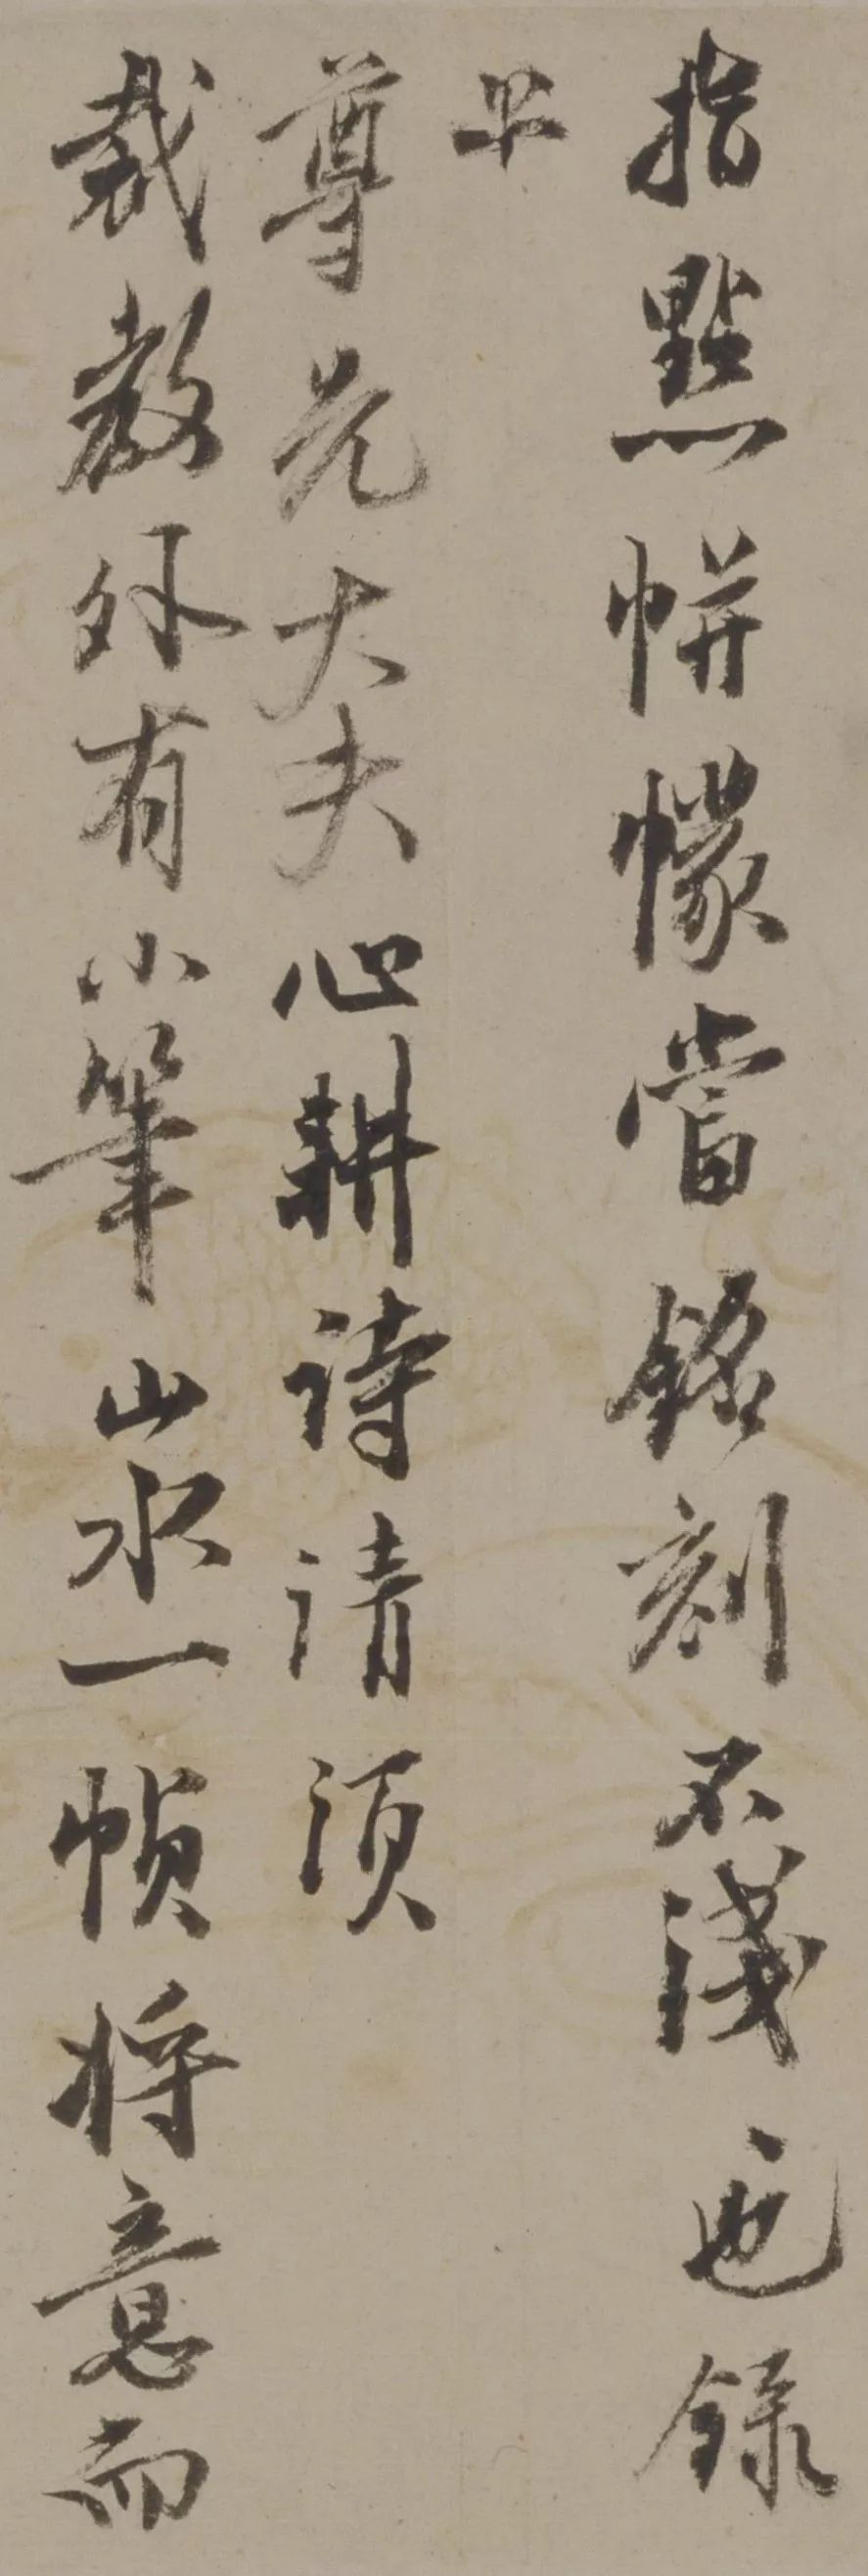 指點帡幪當銘刻不淺也錄
上
尊先大夫心耕詩請須
裁教外有小筆山水一幀將意而